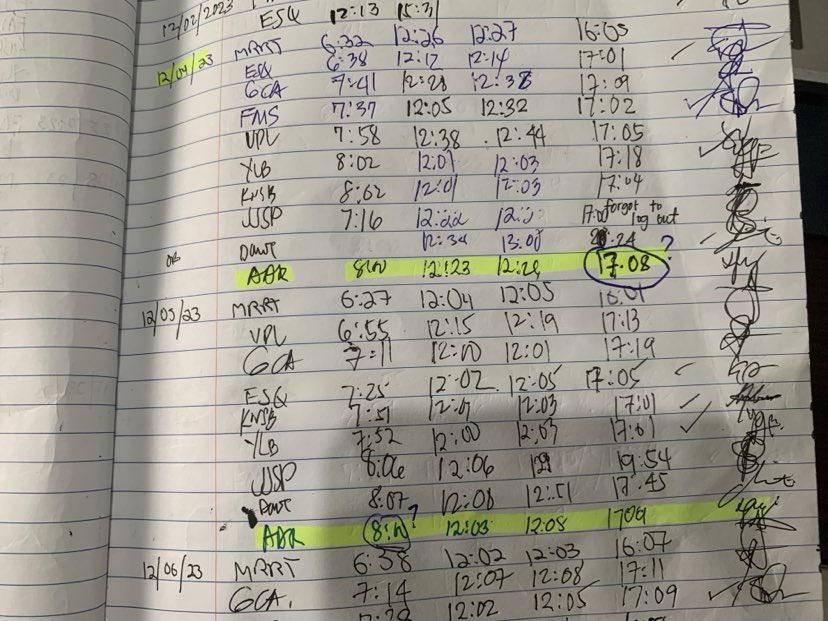 12/02/2023 ESQ 12:13 15:31
MRRT 6:32 12:26 12:27 16:05
12/04/23 ESQ 6:38 12:12 12:14 17:01
GCA 7:41 12:28 12:38 17:09
FMS 7:37 12:05 12:32 17:02
VPL 7:58 12:38 12:44 17:05
YLB 8:02 12:01 12:03 17:18
KNSB 8:02 12:01 12:03 17:04
JJSP 7:16 12:22 forgot to log out
12:34 13:00
OB ABR 12:23 17:08 ?
12/05/23 MRRT 6:27 12:04 12:05 16:01
VPL 6:55 12:15 12:19 17:13
GCA 7:11 12:00 12:01 17:19
ESQ 7:25 12:02 12:05 17:05
KNSB 7:51 12:01 12:03 17:01
YLB 7:52 12:00 12:03 17:01
JJSP 8:06 12:06 19:54
8:07 12:01 12:51 17:45
ABR ? 12:03 12:08 1709
12/06/23 MRRT 6:38 12:02 12:03 16:07
GCA. 7:14 12:07 12:08 17:11
12:02 12:05 17:09